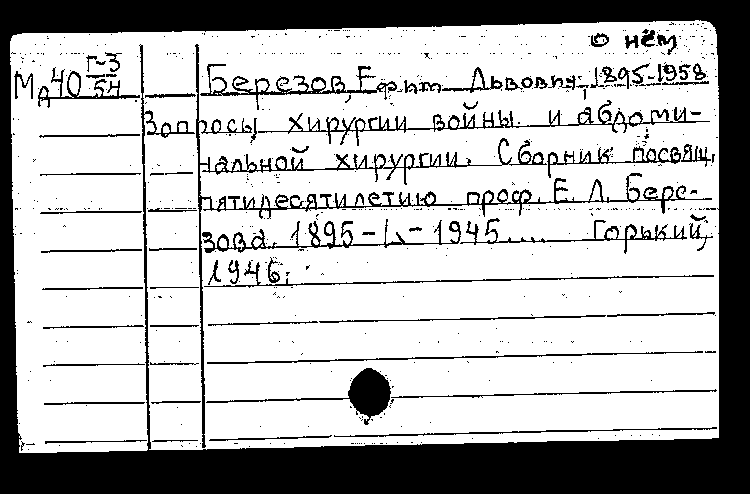 о нём
Мд 40 Г-3
54
Березов, Ефим Львович, 1895-1958
Вопросы хирургии войны и абдоми-
нальной хирургии. Сборник посвящ.
пятидесятилетию проф. Е. Л. Бере-
зова. 1895 - - 1945.... Горький,
1946;